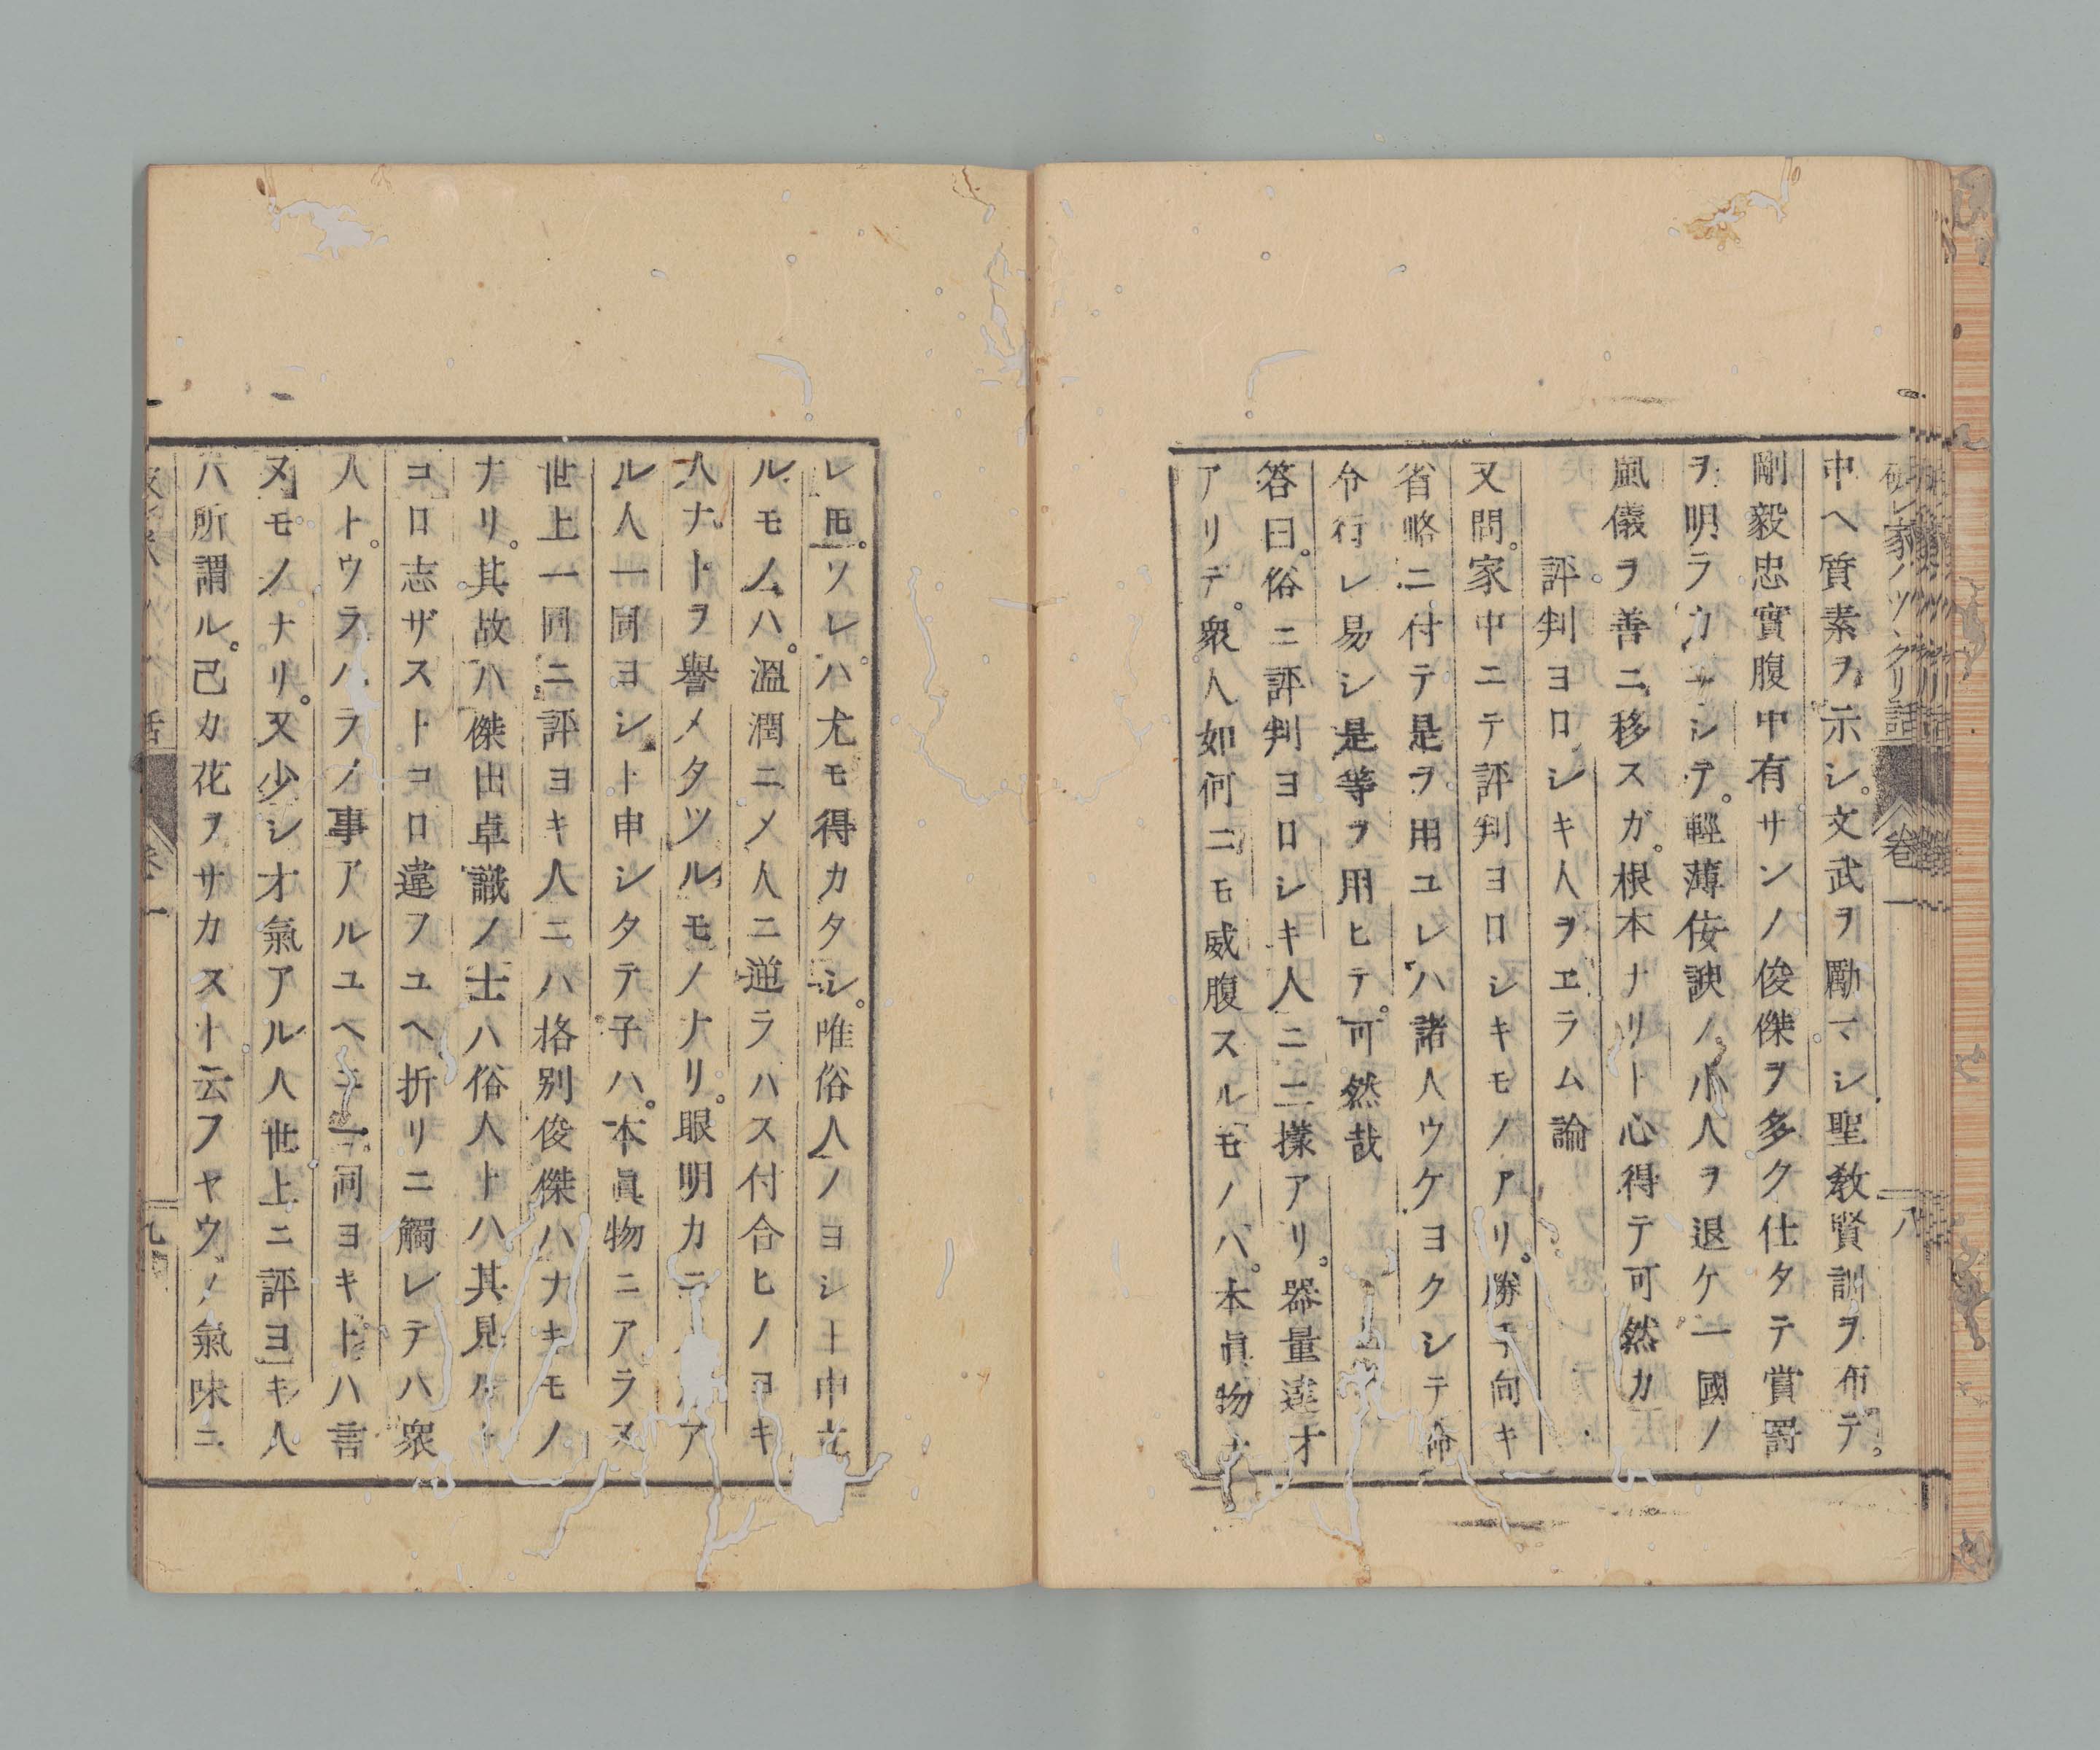 破レ家ノツヾクリ話 卷一 八
中ヘ質素ヲ示シ。文武ヲ勵マシ聖教賢訓ヲ布テ。
剛毅忠實腹中有サンノ俊傑ヲ多ク仕タテ賞罰
ヲ明ラカニシテ。輕薄佞諛ノ小人ヲ退ケ一國ノ
風儀ヲ善ニ移スガ。根本ナリト心得テ可然カ
評判ヨロシキ人ヲヱラム論
又問。家中ニテ評判ヨロシキモノアリ。勝手向キ
省略ニ付テ是ヲ用ユレハ諸人ウケヨクシテ命
令行レ易シ是等ヲ用ヒテ。可然哉
答曰。俗ニ評判ヨロシキ人ニ二樣アリ。器量達才
アリテ。衆人如何ニモ威腹スルモノハ。本眞物
レ𪜈。ソレハ尤モ得カタシ。唯俗人ノヨシト申立
ルモノハ。溫潤ニメ人ニ逆ラハス付合ヒノヨキ
人ナトヲ譽メタツルモノナリ。眼明カニ ア
ル人一同ヨシト申シタテ子ハ。本眞物ニアラス
世上一同ニ評ヨキ人ニハ格別俊傑ハナキモノ
ナリ。其故ハ傑出卓識ノ士ハ俗人トハ其見ルト
コロ志ザストコロ違フユヘ折リニ觸レテハ衆
人ト。ウラハラノ事アルユヘ 一同ヨキトハ言
ヌモノナリ。又少シ才氣アル人世上ニ評ヨキ人
ハ所謂ル。己カ花ヲサカスト云フヤウノ氣味ニ
話 卷一 九